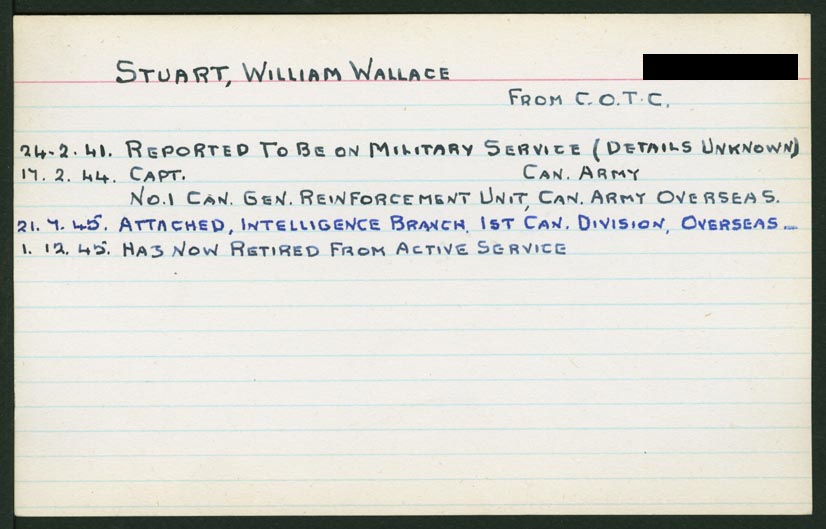 STUART, WILLIAM WALLACE
FROM C.O.T.C.
24.2.41. REPORTED TO BE ON MILITARY SERVICE (DETAILS UNKNOWN)
17.2.44. CAPT. CAN. ARMY
NO.1 CAN. GEN. REINFORCEMENT UNIT, CAN. ARMY OVERSEAS.
21.7.45. ATTACHED, INTELLIGENCE BRANCH, 1ST CAN. DIVISION, OVERSEAS
1.12.45. HAS NOW RETIRED FROM ACTIVE SERVICE